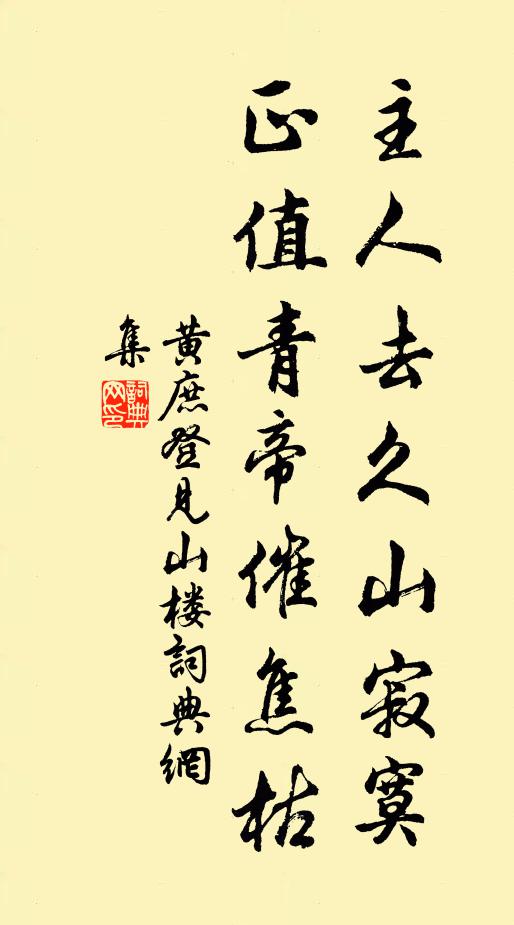 主人去久山寂寞
正值青帝催焦枯
黄庶登見山楼詞典網
集
詞典网印